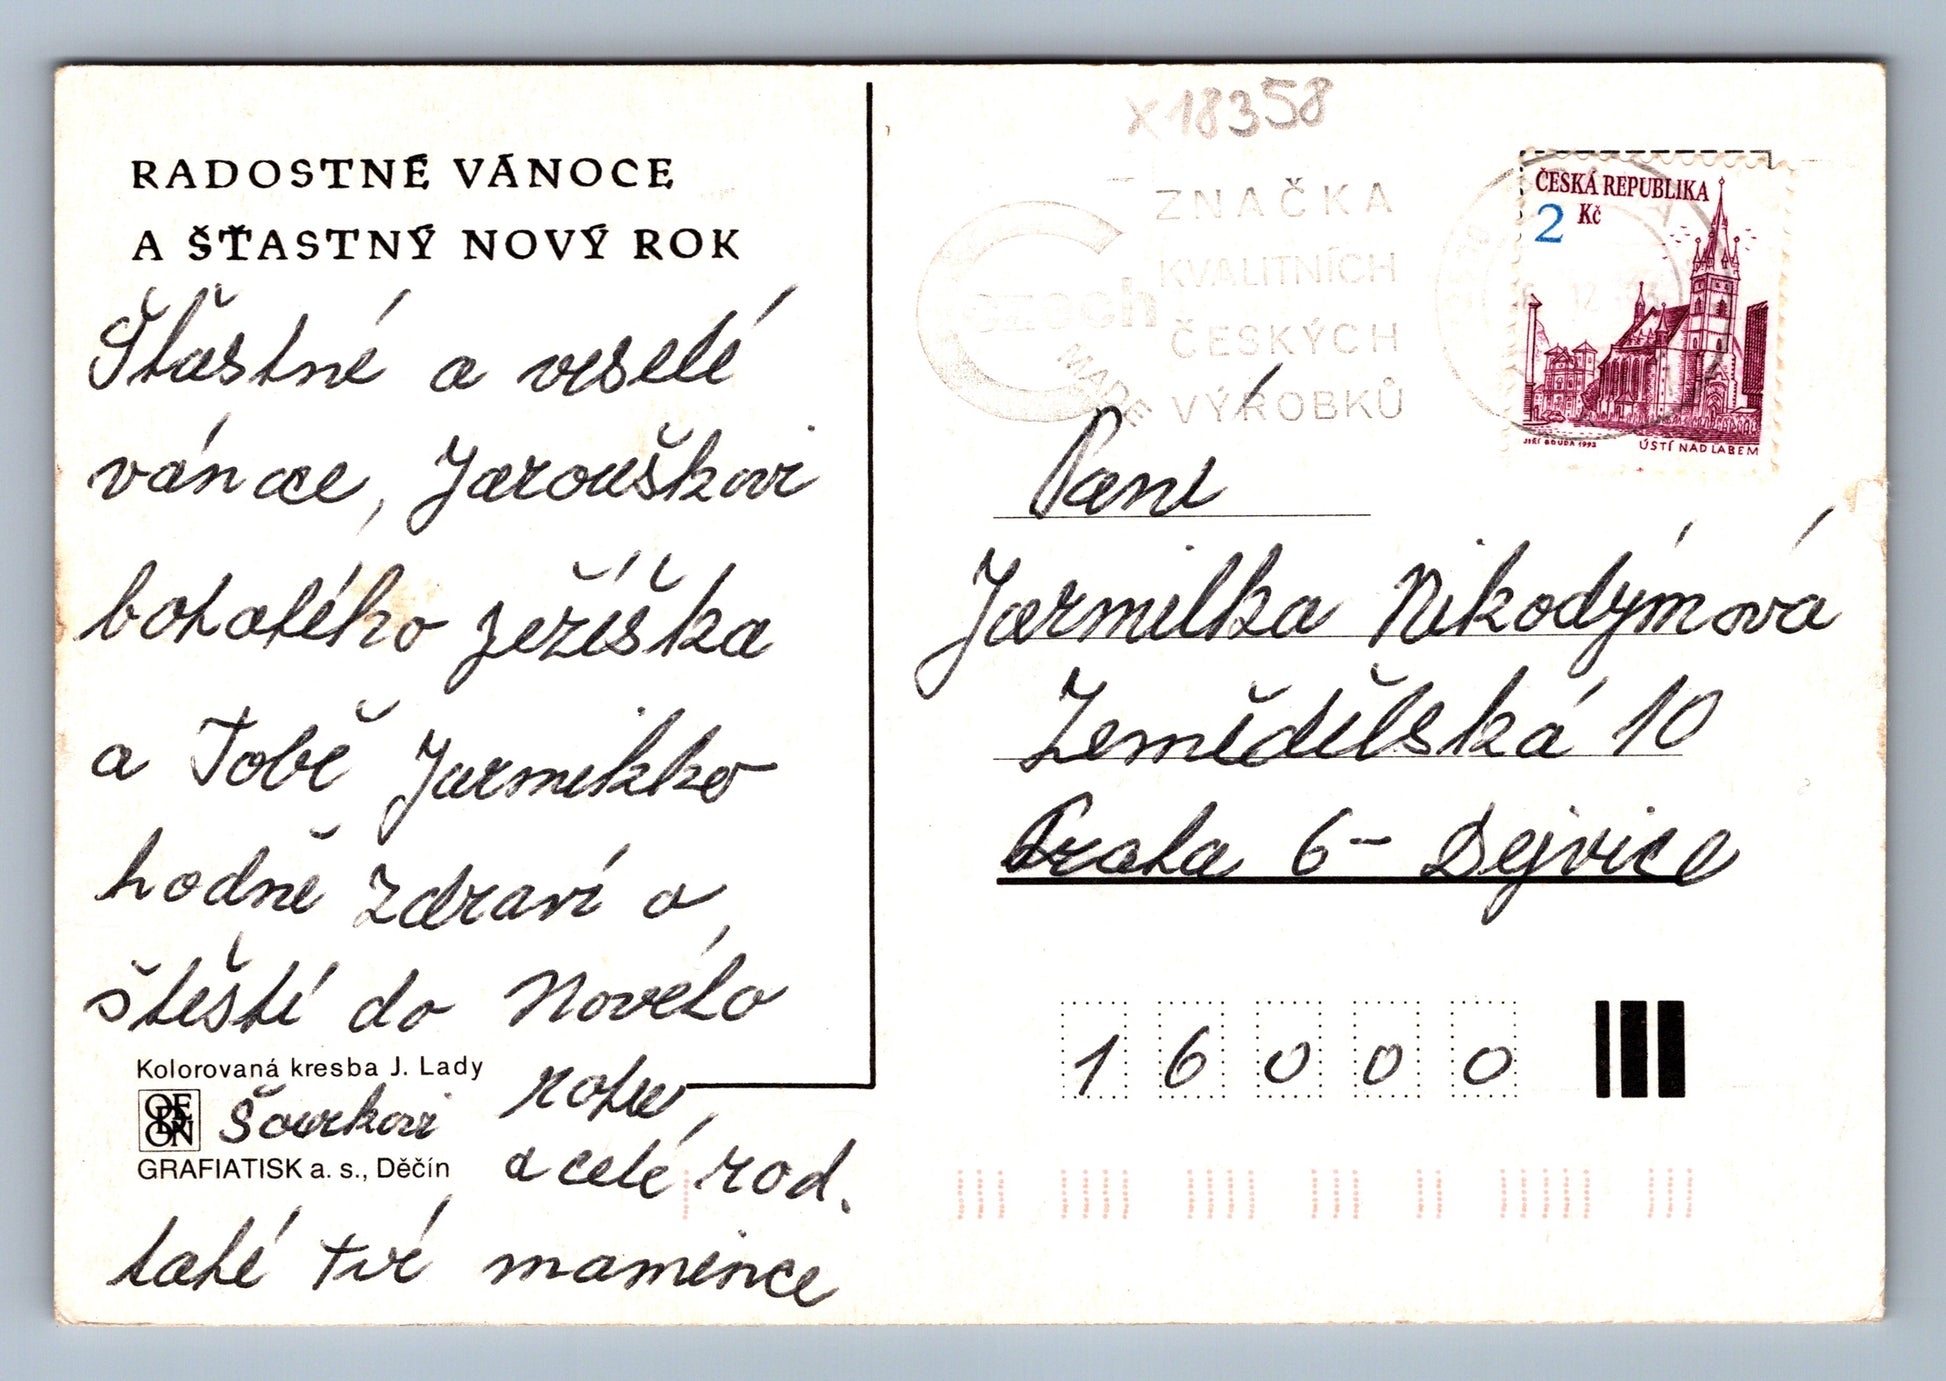 RADOSTNÉ VÁNOCE
A ŠŤASTNÝ NOVÝ ROK
Štastné a veselé
vánoce, Jarouškovi
bohatého ježíška
a Tobě Jarmilko
hodně zdraví a
štěstí do Nového
roku,
Kolorovaná kresba J. Lady
ODEON
Šourkovi
a celé rod.
GRAFIATISK a. s., Děčín
také tvé mamince
x18358
Czech
MADE
ZNAČKA
KVALITNÍCH
ČESKÝCH
VÝROBKŮ
ČESKÁ REPUBLIKA
2 Kč
JIŘÍ BOUDA 1993
ÚSTÍ NAD LABEM
Paní
Jarmilka Nikodýmová
Zemědělská 10
Praha 6 - Dejvice
16000